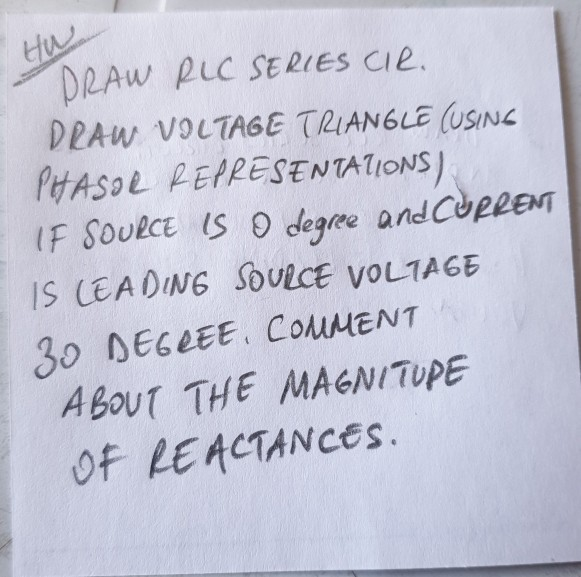 HW
DRAW RLC SERIES CIR.
DRAW VOLTAGE TRIANGLE (USING
PHASOR REPRESENTATIONS)
IF SOURCE IS 0 degree and CURRENT
IS LEADING SOURCE VOLTAGE
30 DEGREE. COMMENT
ABOUT THE MAGNITUDE
OF REACTANCES.